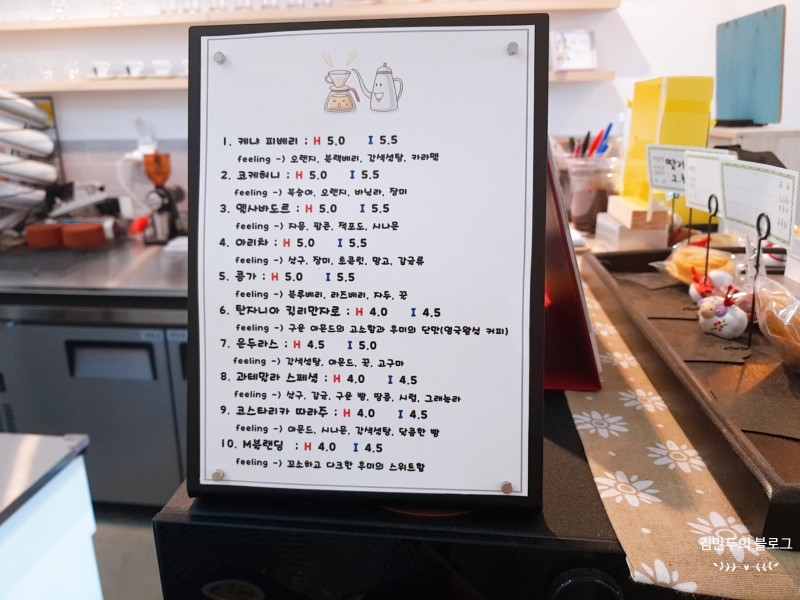 1. 케냐 피베리 : H 5.0 I 5.5
feeling -> 오렌지, 블랙베리, 갈색설탕, 카라멜
2. 코케허니 : H 5.0 I 5.5
feeling -> 복숭아, 오렌지, 바닐라, 장미
3. 엘사바도르 : H 5.0 I 5.5
feeling -> 자몽, 팥콘, 적포도, 시나몬
4. 아리차 : H 5.0 I 5.5
feeling -> 살구, 장미, 초콜릿, 망고, 감귤류
5. 콩가 : H 5.0 I 5.5
feeling -> 블루베리, 라즈베리, 자두, 꿀
6. 탄자니아 킬리만자로 : H 4.0 I 4.5
feeling -> 구운 아몬드의 고소함과 후미의 단맛(영국왕실 커피)
7. 온두라스 : H 4.5 I 5.0
feeling -> 갈색설탕, 아몬드, 꿀, 고구마
8. 과테말라 스페셜 : H 4.0 I 4.5
feeling -> 살구, 감귤, 구운 빵, 땅콩, 시럽, 그래놀라
9. 코스타리카 따라주 : H 4.0 I 4.5
feeling -> 아몬드, 시나몬, 갈색설탕, 달콤한 빵
10. M블랜딩 : H 4.0 I 4.5
feeling -> 고소하고 다크한 후미의 스위트함
김만두의 블로그